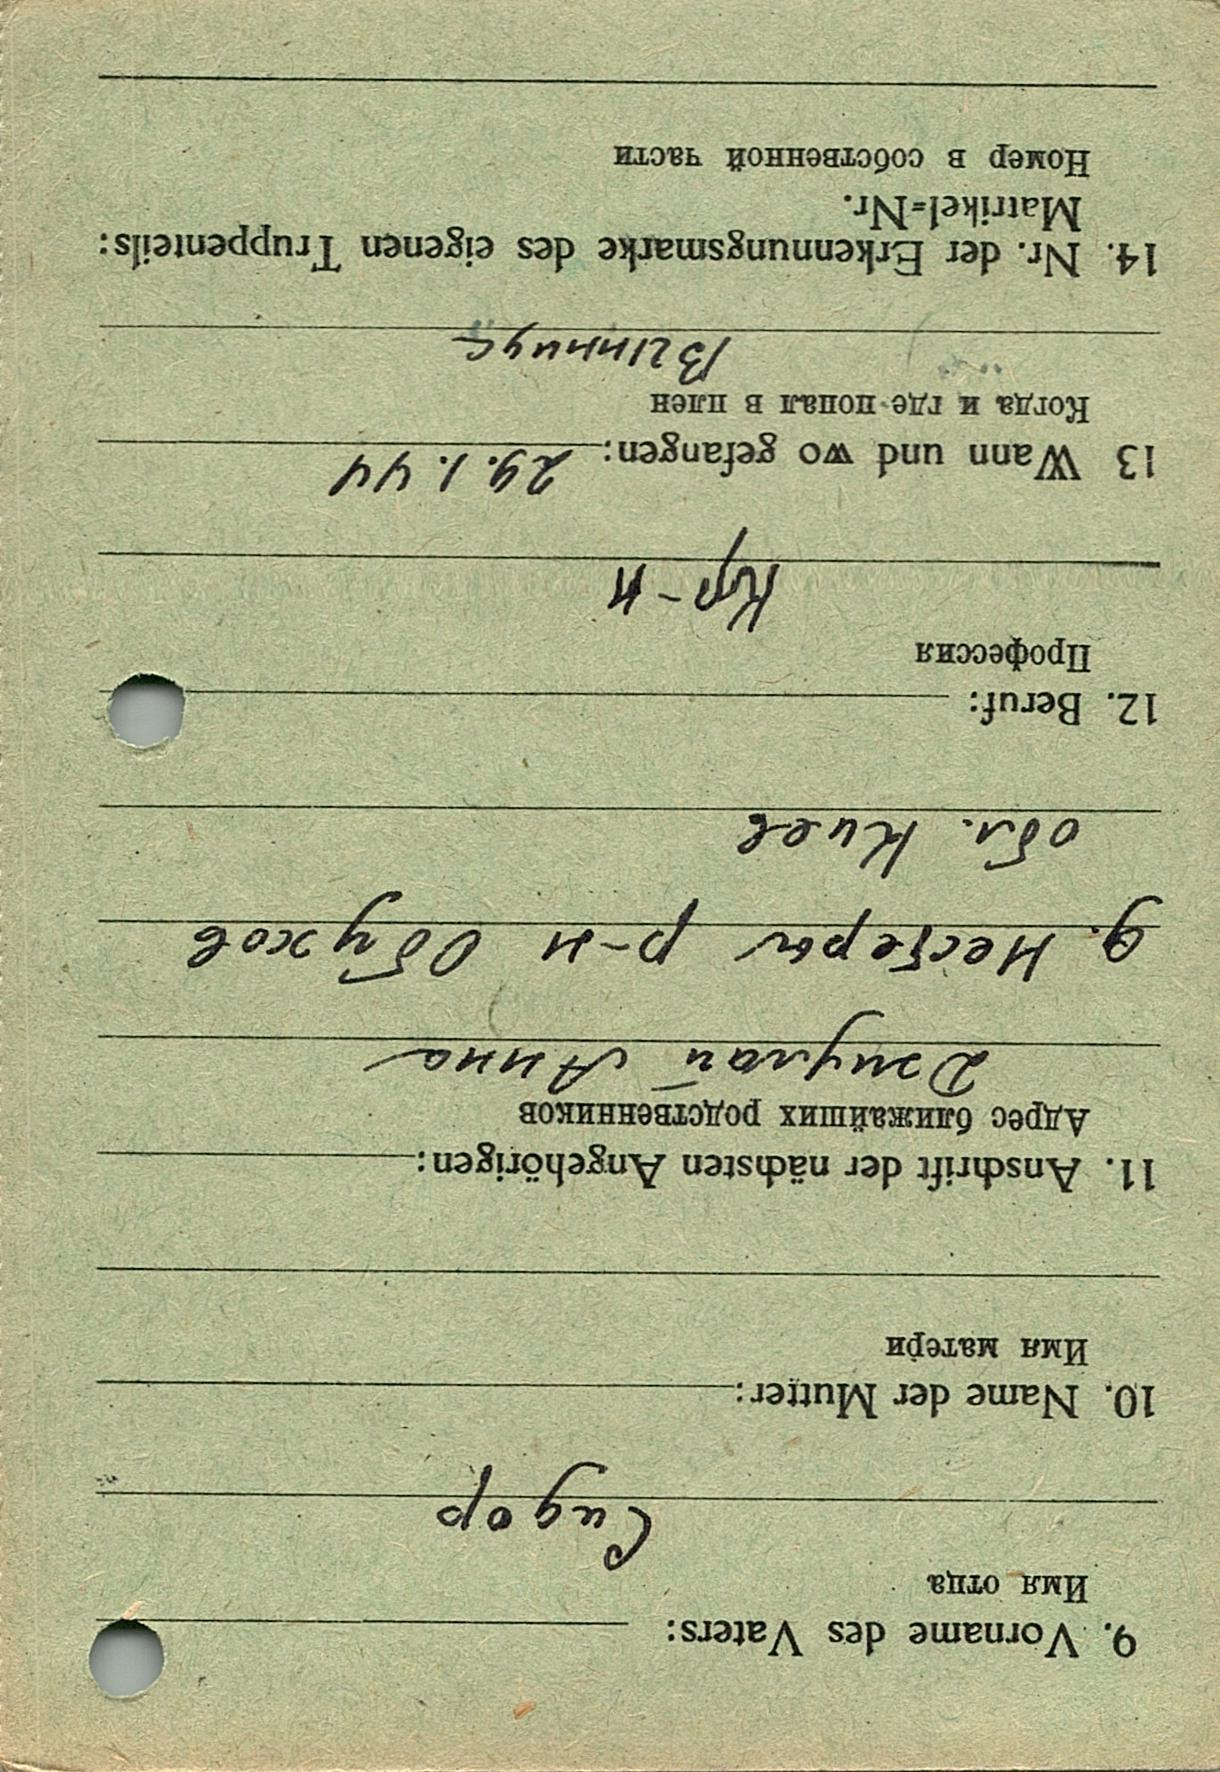 9. Vorname des Vaters:
Имя отца
Сидор
10. Name der Mutter:
Имя матери
11. Anschrift der nächsten Angehörigen:
Адрес ближайших родственников
Джулай Анна
д. Нестеры р-н Обухов
обл. Киев
12. Beruf:
Профессия
Кр-н
13 Wann und wo gefangen: 29.1.44
Когда и где попал в плен
14. Nr. der Erkennungsmarke des eigenen Truppenteils:
Matrikel-Nr.
Номер в собственной части